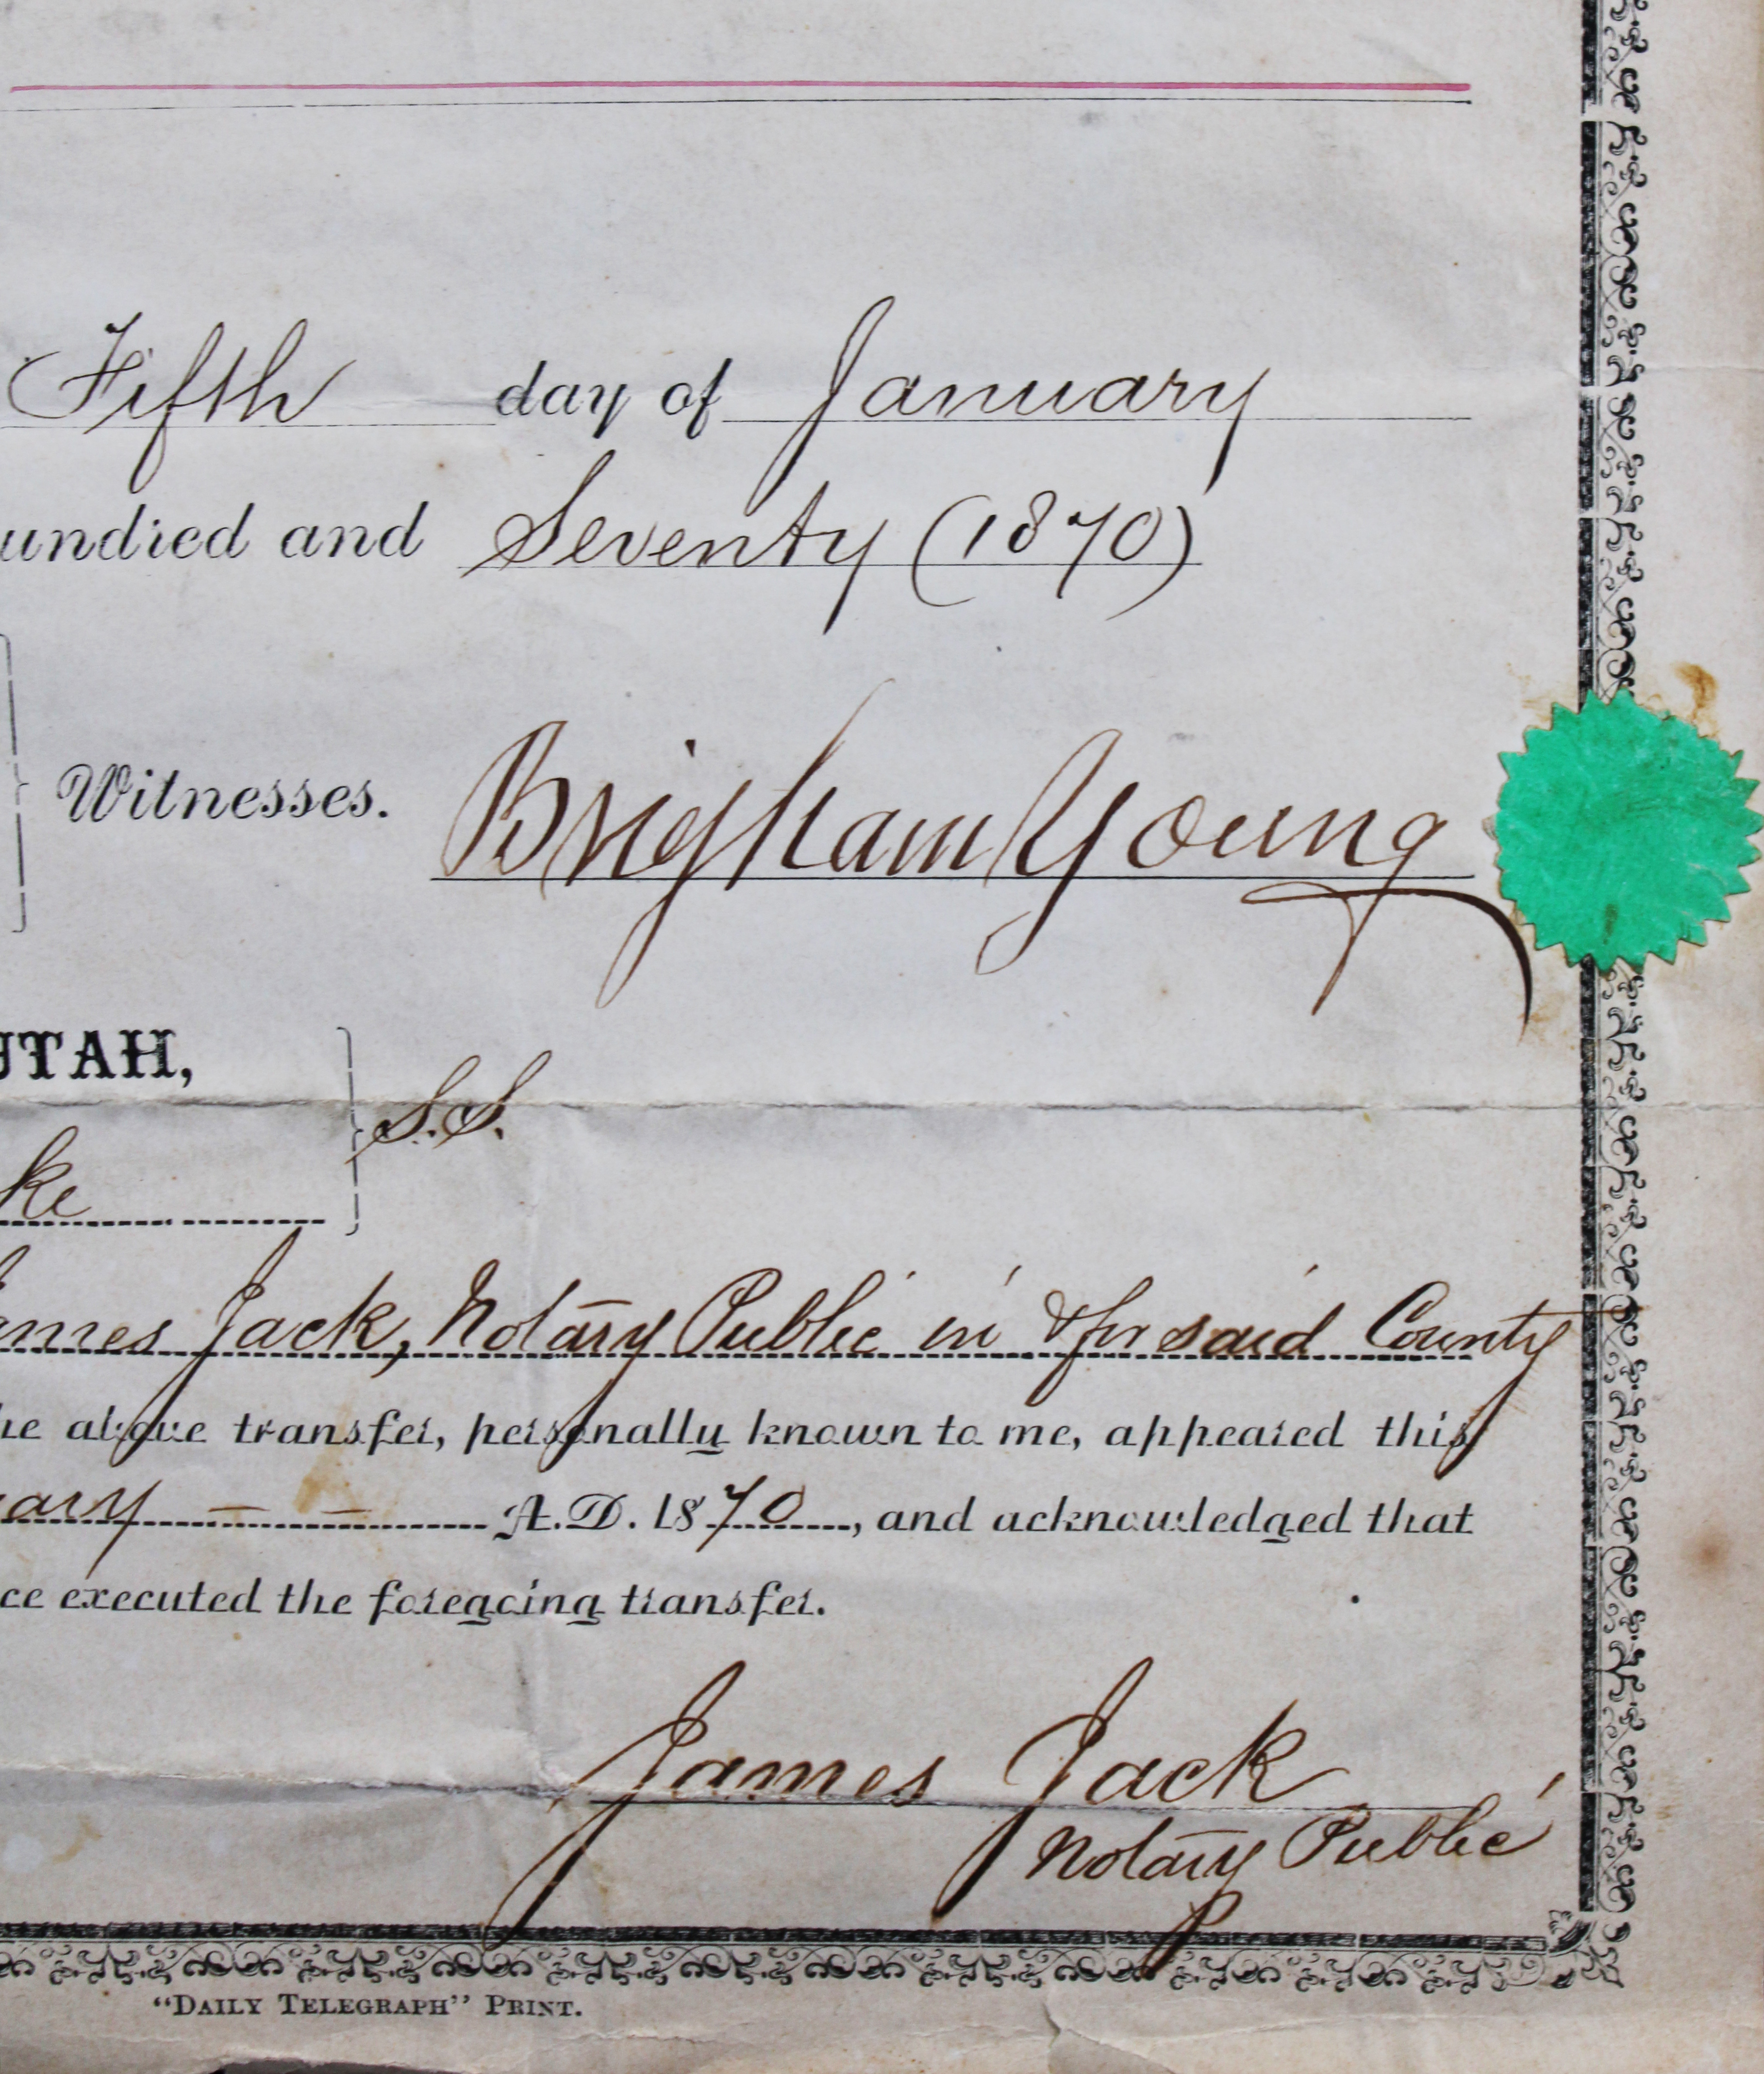 Fifth day of January
undred and Seventy (1870)
Witnesses. Brigham Young
UTAH,
S.S.
ke
ames Jack, Notary Public in & for said County
he above transfer, personally known to me, appeared this
ary A.D. 1870, and acknowledged that
ce executed the foregoing transfer.
James Jack
Notary Public
"DAILY TELEGRAPH" PRINT.